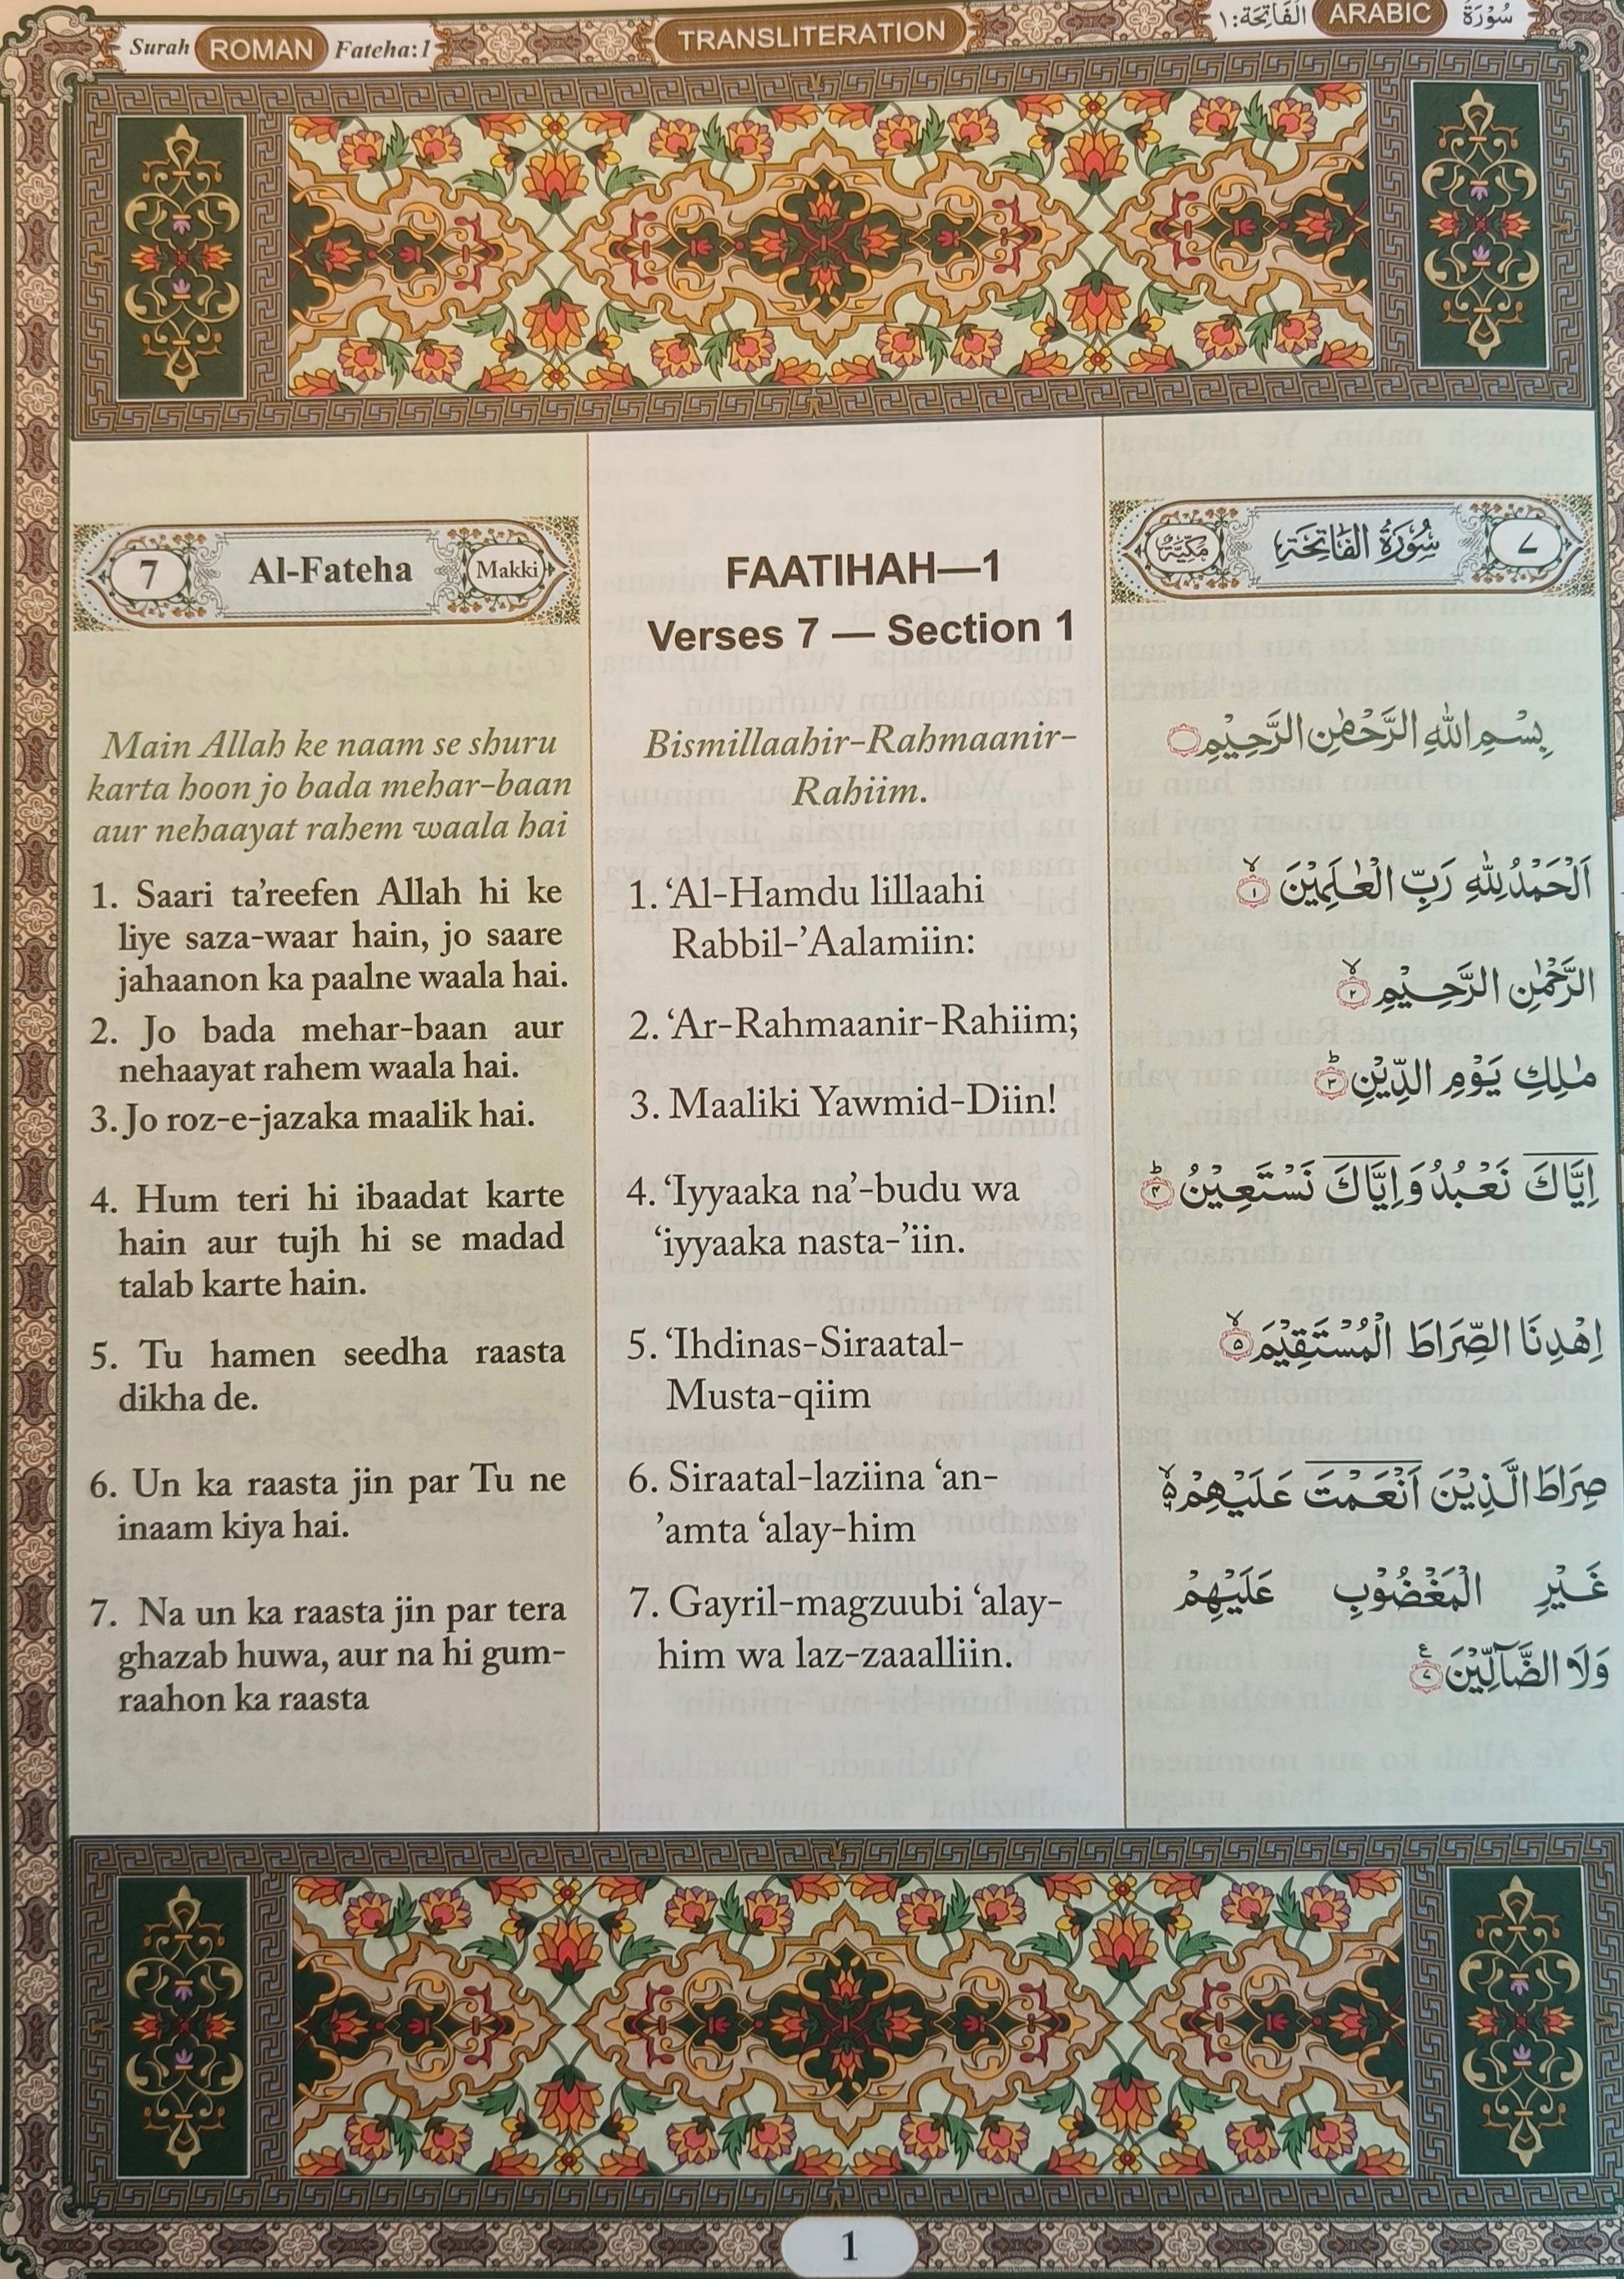 Surah ROMAN Fateha:1
TRANSLITERATION
سُوْرَةُ ARABIC الفَاتِحَة:١
7 Al-Fateha Makki
Main Allah ke naam se shuru
karta hoon jo bada mehar-baan
aur nehaayat rahem waala hai
1. Saari ta’reefen Allah hi ke
liye saza-waar hain, jo saare
jahaanon ka paalne waala hai.
2. Jo bada mehar-baan aur
nehaayat rahem waala hai.
3. Jo roz-e-jazaka maalik hai.
4. Hum teri hi ibaadat karte
hain aur tujh hi se madad
talab karte hain.
5. Tu hamen seedha raasta
dikha de.
6. Un ka raasta jin par Tu ne
inaam kiya hai.
7. Na un ka raasta jin par tera
ghazab huwa, aur na hi gum-
raahon ka raasta
FAATIHAH—1
Verses 7 — Section 1
Bismillaahir-Rahmaanir-
Rahiim.
1. ‘Al-Hamdu lillaahi
Rabbil-’Aalamiin:
2. ‘Ar-Rahmaanir-Rahiim;
3. Maaliki Yawmid-Diin!
4. ‘Iyyaaka na’-budu wa
‘iyyaaka nasta-’iin.
5. ‘Ihdinas-Siraatal-
Musta-qiim
6. Siraatal-laziina ‘an-
’amta ‘alay-him
7. Gayril-magzuubi ‘alay-
him wa laz-zaaalliin.
٧ سُوْرَةُ الفَاتِحَةِ مَكِّيَّةٌ
بِسْمِ اللّٰهِ الرَّحْمٰنِ الرَّحِيْمِ
اَلْحَمْدُ لِلّٰهِ رَبِّ الْعٰلَمِيْنَ ۙ﴿۱﴾
الرَّحْمٰنِ الرَّحِيْمِ ۙ﴿۲﴾
مٰلِكِ يَوْمِ الدِّيْنِ ؕ﴿۳﴾
اِيَّاكَ نَعْبُدُ وَ اِيَّاكَ نَسْتَعِيْنُ ؕ﴿۴﴾
اِهْدِنَا الصِّرَاطَ الْمُسْتَقِيْمَ ۙ﴿۵﴾
صِرَاطَ الَّذِيْنَ اَنْعَمْتَ عَلَيْهِمْ ۙ۬
غَيْرِ الْمَغْضُوْبِ عَلَيْهِمْ
وَلَا الضَّآلِّيْنَ ﴿۷﴾ ع
1